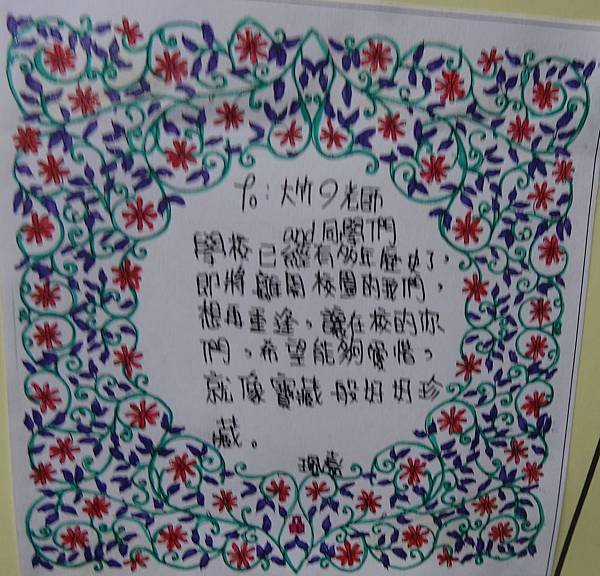 To：大竹9老師
and 同學們
學校已經有多年歷史了，
即將離開校園的我們，
想再重逢，讓在校的你
們，希望能夠愛惜，
就像寶藏一般好好珍
藏。